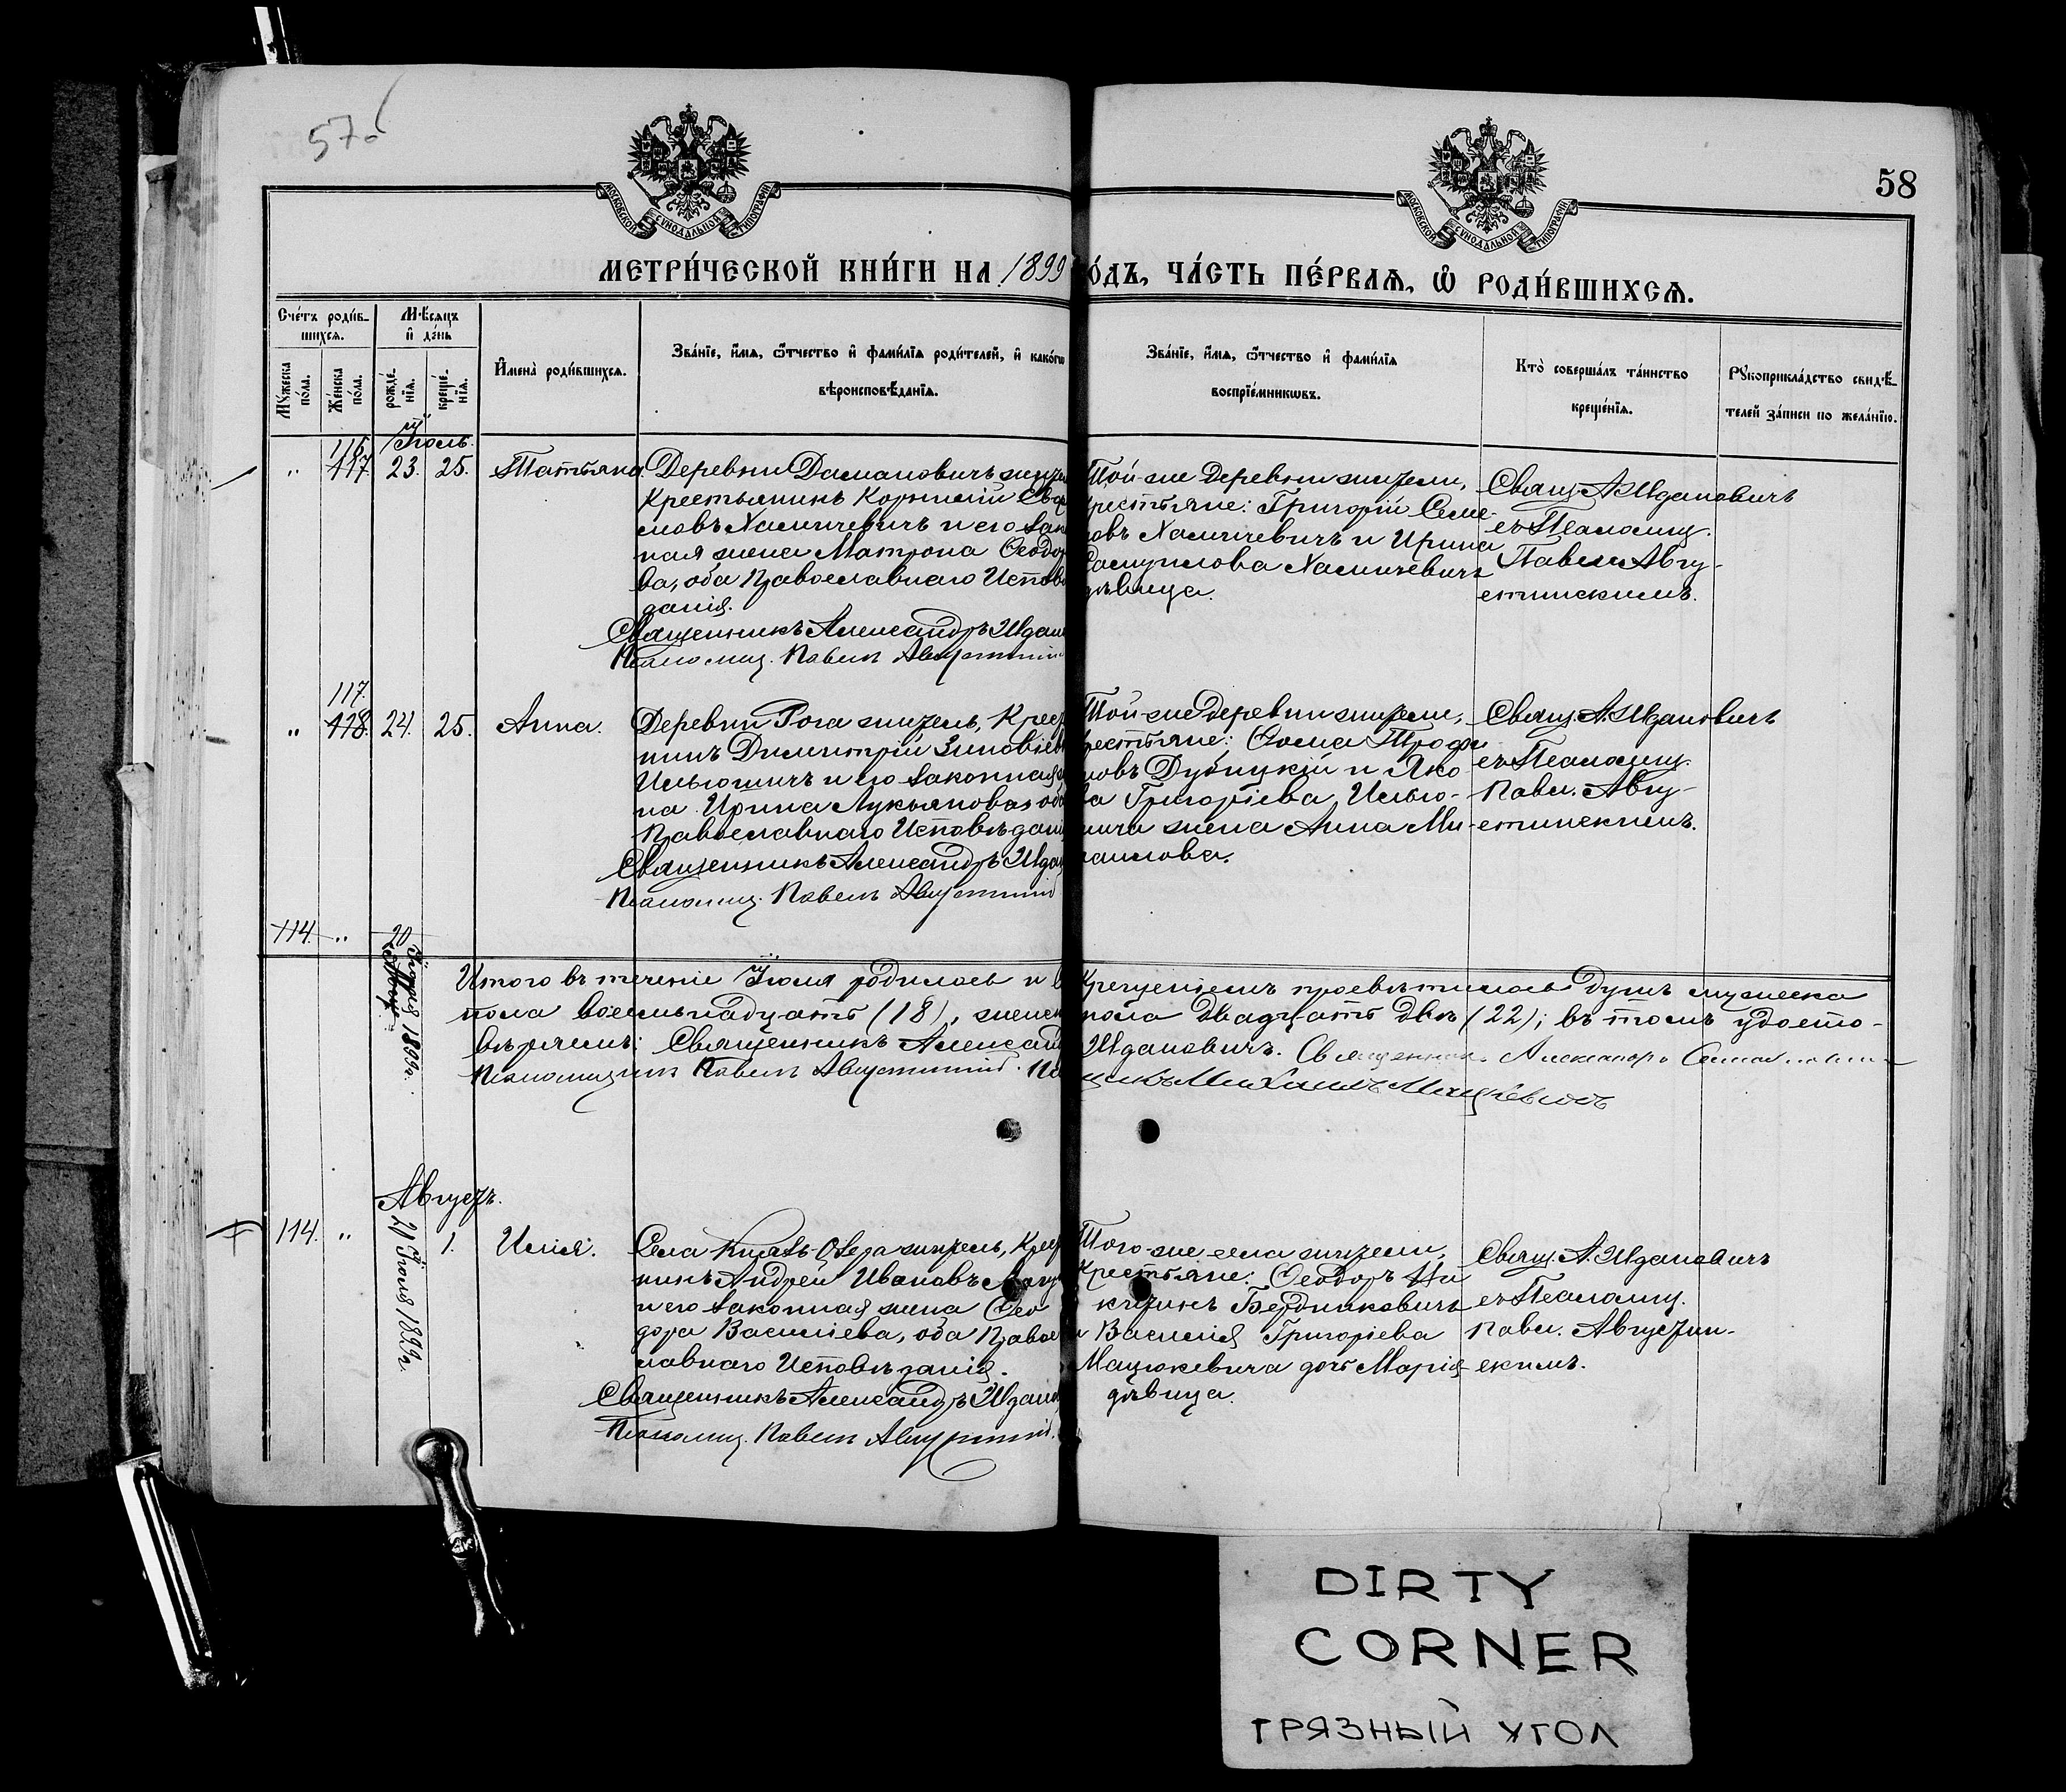 57об
58
МОСКОВСКОЙ СУНОДАЛЬНОЙ ТИПОГРАФІИ
МОСКОВСКОЙ СУНОДАЛЬНОЙ ТИПОГРАФІИ
МЕТРИ́ЧЕСКОЙ КНИ́ГИ НА 1899
О́ДЪ, ЧА́СТЬ ПЕ́РВАѦ, Ѡ҆ РОДИ́ВШИХСѦ.
Сче́тъ роди́в-
шихсѧ.
Мꙋ́жеска по́ла.
Же́нска по́ла.
Мѣ́сѧцъ
и҆ де́нь
рожде́-нїѧ.
креще́-нїѧ.
И҆мена̀ роди́вшихсѧ.
Зва́нїе, и҆́мѧ, ѻ҆́тчество и҆ фами́лїѧ роди́телей, и҆ како́гѡ
вѣроисповѣ́данїѧ.
Зва́нїе, и҆́мѧ, ѻ҆́тчество и҆ фами́лїѧ
воспрїе́мникѡвъ.
Кто̀ соверша́лъ та́инство
креще́нїѧ.
Рꙋкоприкла́дство свидѣ́-
телей за́писи по жела́нїю.
Іюль.
116.
" 117. 23. 25. Татьяна.
Деревни Дамановичъ жите
Крестьянинъ Корнилій
мовъ Халичевичъ и его Зак
ная жена Матрона Ѳеодо
ва, оба Православнаго Испов
данія.
Священникъ Александръ Ждан
Псаломщ. Павелъ Августин
Той-же деревни жители,
рестьяне: Григорій Семе-
новъ Халичевичъ и Ирина
Самуилова Халичевичъ
дѣвица.
Свящ. А. Ждановичъ
съ Псаломщ.
Павлом Авгу-
стинскимъ.
117.
" 118. 24. 25. Анна.
Деревни Рога житель, Крес
нинъ Димитрій Зиновіев
Ильюшичъ и его Законная
на Ирина Лукьянова, оба
Православнаго Исповѣдані
Священникъ Александръ Ждан
Псаломщ. Павелъ Августин
Той-же деревни жители,
рестьяне: Ѳома Трофи
мовъ Дубицкій и Яко-
ва Григорієва Илью-
шича жена Анна Ми-
хаилова.
Свящ. А. Ждановичъ
съ Псаломщ.
Павл. Авгу-
стинскимъ.
114. " 20
Іюля 1899г.
Итого въ теченіе Іюля родилось и
Крещеніемъ просвѣтилось душъ мужеска
пола восемьнадцать (18), женск
пола двадцать двѣ (22); въ томъ удосто-
вѣряемъ: Священникъ Александ
Ждановичъ. Священникъ Александръ
Псаломщикъ Павелъ Августинскій. Пс
щикъ Михаилъ Мацкевичъ
Августъ.
114. " 20 Іюля 1899г. 1. Илія.
Села Князь-Озера житель, Крес
нинъ Андрей Ивановъ
и его Законная жена Ѳео
дора Василіева, оба Правос
лавнаго Исповѣданія.
Священникъ Александръ Ждан
Псаломщ. Павелъ Августинскій.
Того-же села жители,
Крестьяне: Ѳеодоръ Ни
китинъ Бердниковичъ
и Василія Григоріева
Мацюкевича дочь Марія
дѣвица.
Свящ. А. Ждановичъ
съ Псаломщ.
Павл. Августин-
скимъ.
DIRTY
CORNER
ГРЯЗНЫЙ УГОЛ